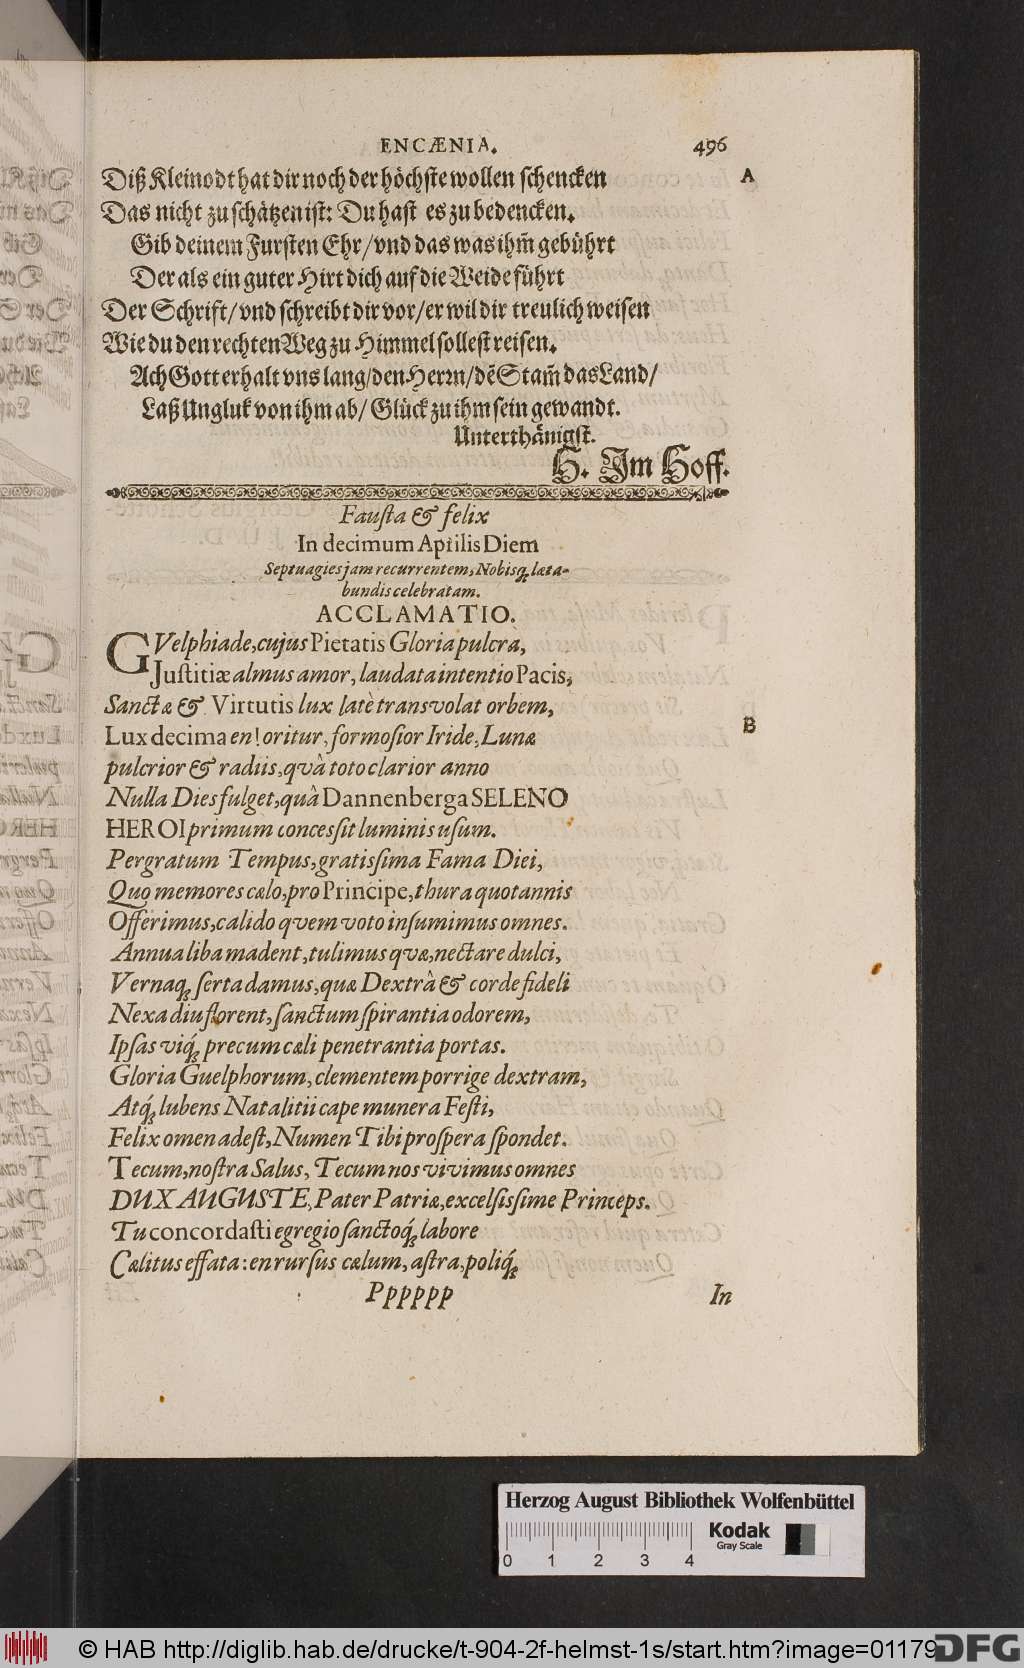 ENCÆNIA. 496
Diß Kleinodt hat dir noch der höchste wollen schencken A
Das nicht zu schätzen ist: Du hast es zu bedencken.
Gib deinem Fursten Ehr/ vnd das was ihm̃ gebührt
Der als ein guter Hirt dich auf die Weide führt
Der Schrift/ vnd schreibt dir vor/ er wil dir treulich weisen
Wie du den rechten Weg zu Himmel sollest reisen.
Ach Gott erhalt vns lang/ den Herrn/ dẽ Stam̃ das Land/
Laß Ungluk von ihm ab/ Glück zu ihm sein gewandt.
Unterthänigst.
H. Im Hoff.
Fausta & felix
In decimum Aprilis Diem
Septuagies jam recurrentem, Nobisq; læta-
bundis celebratam.
ACCLAMATIO.
GVelphiade, cujus Pietatis Gloria pulcra,
Justitiæ almus amor, laudata intentio Pacis,
Sanctæ & Virtutis lux latè transvolat orbem,
Lux decima en! oritur, formosior Iride, Lunæ B
pulcrior & radiis, qvâ toto clarior anno
Nulla Dies fulget, quâ Dannenberga SELENO
HEROI primum concessit luminis usum.
Pergratum Tempus, gratissima Fama Diei,
Quo memores cælo, pro Principe, thura quotannis
Offerimus, calido qvem voto insumimus omnes.
Annua liba madent, tulimus qvæ, nectare dulci,
Vernaq; serta damus, quæ Dextrâ & corde fideli
Nexa diu florent, sanctum spirantia odorem,
Ipsas viq́; precum cæli penetrantia portas.
Gloria Guelphorum, clementem porrige dextram,
Atq́; lubens Natalitii cape munera Festi,
Felix omen adest, Numen Tibi prospera spondet.
Tecum, nostra Salus, Tecum nos vivimus omnes
DUX AUGUSTE, Pater Patriæ, excelsissime Princeps.
Tu concordasti egregio sanctoq́; labore
Cælitus effata: en rursus cælum, astra, poliq́;
Pppppp In
Herzog August Bibliothek Wolfenbüttel
Kodak
Gray Scale
0 1 2 3 4
© HAB http://diglib.hab.de/drucke/t-904-2f-helmst-1s/start.htm?image=01179
DFG